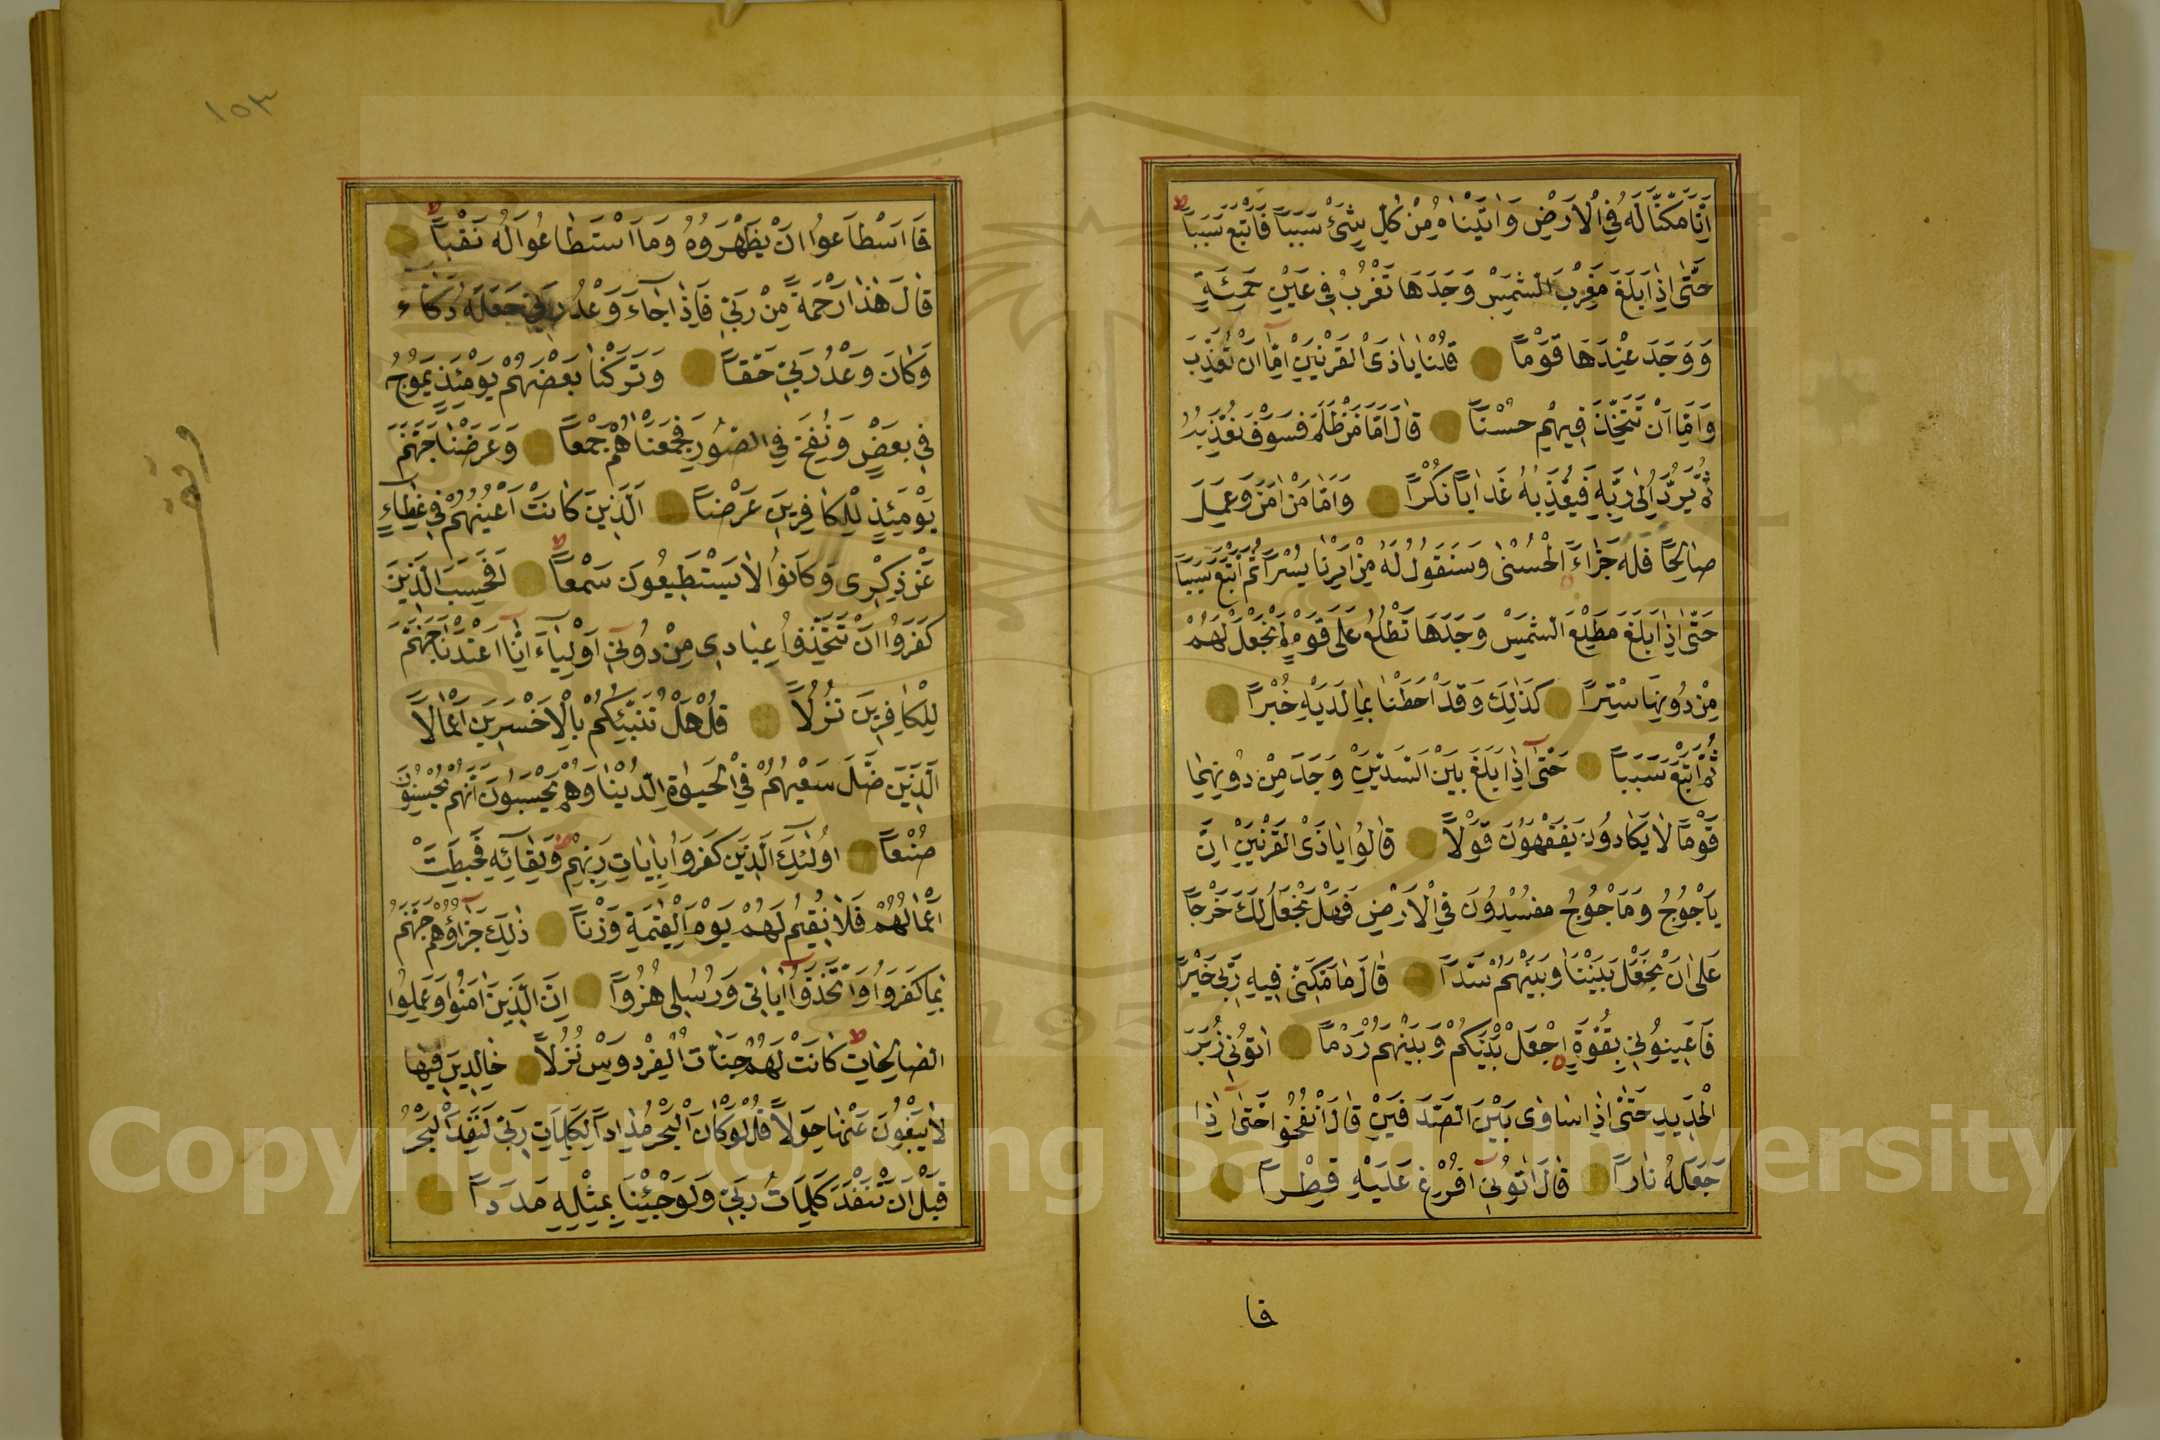 اِنَّا مَكَّنَّا لَهُ فِي الْاَرْضِ وَاٰتَيْنَاهُ مِنْ كُلِّ شَيْءٍ سَبَبًا فَاَتْبَعَ سَبَبًا
حَتّٰى اِذَا بَلَغَ مَغْرِبَ الشَّمْسِ وَجَدَهَا تَغْرُبُ فِي عَيْنٍ حَمِئَةٍ
وَوَجَدَ عِنْدَهَا قَوْمًا قُلْنَا يَا ذَا الْقَرْنَيْنِ اِمَّا اَنْ تُعَذِّبَ
وَاِمَّا اَنْ تَتَّخِذَ فِيهِمْ حُسْنًا قَالَ اَمَّا مَنْ ظَلَمَ فَسَوْفَ نُعَذِّبُهُ
ثُمَّ يُرَدُّ اِلٰى رَبِّهِ فَيُعَذِّبُهُ عَذَابًا نُكْرًا وَاَمَّا مَنْ اٰمَنَ وَعَمِلَ
صَالِحًا فَلَهُ جَزَاءً الْحُسْنٰى وَسَنَقُولُ لَهُ مِنْ اَمْرِنَا يُسْرًا ثُمَّ اَتْبَعَ سَبَبًا
حَتّٰى اِذَا بَلَغَ مَطْلِعَ الشَّمْسِ وَجَدَهَا تَطْلُعُ عَلٰى قَوْمٍ لَمْ نَجْعَلْ لَهُمْ
مِنْ دُونِهَا سِتْرًا كَذٰلِكَ وَقَدْ اَحَطْنَا بِمَا لَدَيْهِ خُبْرًا
ثُمَّ اَتْبَعَ سَبَبًا حَتّٰى اِذَا بَلَغَ بَيْنَ السَّدَّيْنِ وَجَدَ مِنْ دُونِهِمَا
قَوْمًا لَا يَكَادُونَ يَفْقَهُونَ قَوْلًا قَالُوا يَا ذَا الْقَرْنَيْنِ اِنَّ
يَأْجُوجَ وَمَأْجُوجَ مُفْسِدُونَ فِي الْاَرْضِ فَهَلْ نَجْعَلُ لَكَ خَرْجًا
عَلٰى اَنْ تَجْعَلَ بَيْنَنَا وَبَيْنَهُمْ سَدًّا قَالَ مَا مَكَّنِّي فِيهِ رَبِّي خَيْرٌ
فَاَعِينُونِي بِقُوَّةٍ اَجْعَلْ بَيْنَكُمْ وَبَيْنَهُمْ رَدْمًا اٰتُونِي زُبَرَ
الْحَدِيدِ حَتّٰى اِذَا سَاوٰى بَيْنَ الصَّدَفَيْنِ قَالَ انْفُخُوا حَتّٰى اِذَا
جَعَلَهُ نَارًا قَالَ اٰتُونِي اُفْرِغْ عَلَيْهِ قِطْرًا
فا
١٥٣
وقف
فَمَا اسْطَاعُوا اَنْ يَظْهَرُوهُ وَمَا اسْتَطَاعُوا لَهُ نَقْبًا
قَالَ هٰذَا رَحْمَةٌ مِنْ رَبِّي فَاِذَا جَاءَ وَعْدُ رَبِّي جَعَلَهُ دَكَّاءَ
وَكَانَ وَعْدُ رَبِّي حَقًّا وَتَرَكْنَا بَعْضَهُمْ يَوْمَئِذٍ يَمُوجُ
فِي بَعْضٍ وَنُفِخَ فِي الصُّورِ فَجَمَعْنَاهُمْ جَمْعًا وَعَرَضْنَا جَهَنَّمَ
يَوْمَئِذٍ لِلْكَافِرِينَ عَرْضًا اَلَّذِينَ كَانَتْ اَعْيُنُهُمْ فِي غِطَاءٍ
عَنْ ذِكْرِي وَكَانُوا لَا يَسْتَطِيعُونَ سَمْعًا اَفَحَسِبَ الَّذِينَ
كَفَرُوا اَنْ يَتَّخِذُوا عِبَادِي مِنْ دُونِي اَوْلِيَاءَ اِنَّا اَعْتَدْنَا جَهَنَّمَ
لِلْكَافِرِينَ نُزُلًا قُلْ هَلْ نُنَبِّئُكُمْ بِالْاَخْسَرِينَ اَعْمَالًا
اَلَّذِينَ ضَلَّ سَعْيُهُمْ فِي الْحَيٰوةِ الدُّنْيَا وَهُمْ يَحْسَبُونَ اَنَّهُمْ يُحْسِنُونَ
صُنْعًا اُولٰئِكَ الَّذِينَ كَفَرُوا بِاٰيَاتِ رَبِّهِمْ وَلِقَائِهِ فَحَبِطَتْ
اَعْمَالُهُمْ فَلَا نُقِيمُ لَهُمْ يَوْمَ الْقِيٰمَةِ وَزْنًا ذٰلِكَ جَزَاؤُهُمْ جَهَنَّمُ
بِمَا كَفَرُوا وَاتَّخَذُوا اٰيَاتِي وَرُسُلِي هُزُوًا اِنَّ الَّذِينَ اٰمَنُوا وَعَمِلُوا
الصَّالِحَاتِ كَانَتْ لَهُمْ جَنَّاتُ الْفِرْدَوْسِ نُزُلًا خَالِدِينَ فِيهَا
لَا يَبْغُونَ عَنْهَا حِوَلًا قُلْ لَوْ كَانَ الْبَحْرُ مِدَادًا لِكَلِمَاتِ رَبِّي لَنَفِدَ الْبَحْرُ
قَبْلَ اَنْ تَنْفَدَ كَلِمَاتُ رَبِّي وَلَوْ جِئْنَا بِمِثْلِهِ مَدَدًا
Copyright © King Saud University
195